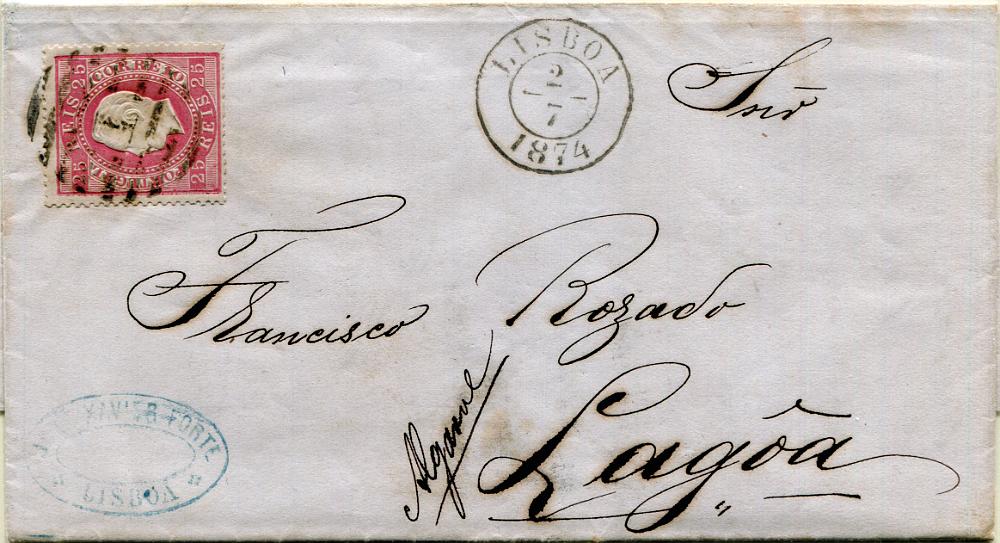 CORREIO
25 REIS 25
25 REIS 25
PORTUGAL
LISBOA
2
7
1874
Snr̄
Francisco Rozado
Algarve
Lagôa
XAVIER FORTE
LISBOA